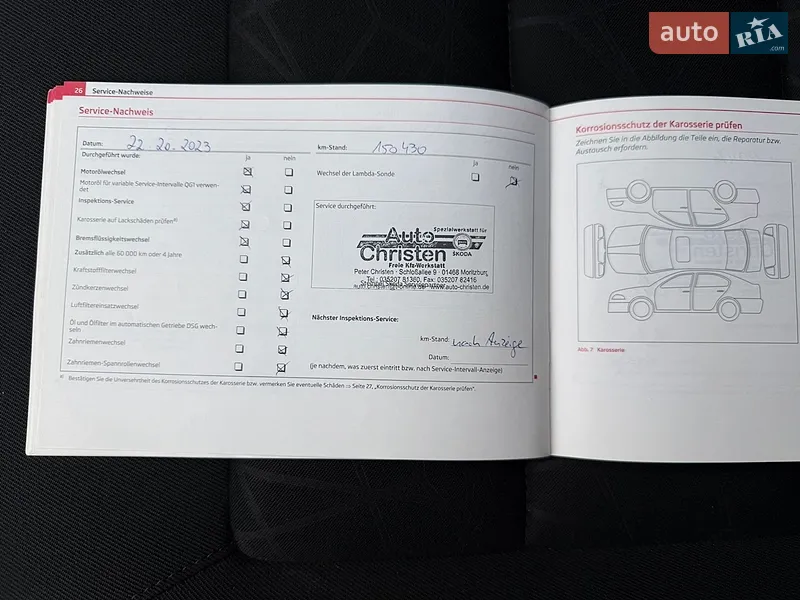 auto RIA .com
26 Service-Nachweise
Service-Nachweis
Datum: 22. 20. 2023
km-Stand: 150 430
Durchgeführt wurde: ja nein
Motorölwechsel
Motoröl für variable Service-Intervalle QGI verwen-
det
Inspektions-Service
Karosserie auf Lackschäden prüfen a)
Bremsflüssigkeitswechsel
Zusätzlich alle 60 000 km oder 4 Jahre
Kraftstofffilterwechsel
Zündkerzenwechsel
Luftfiltereinsatzwechsel
Öl und Ölfilter im automatischen Getriebe DSG wech-
seln
Zahnriemenwechsel
Zahnriemen-Spannrollenwechsel
ja nein
Wechsel der Lambda-Sonde
Service durchgeführt:
Spezialwerkstatt für
Auto
Christen
ŠKODA
Freie Kfz-Werkstatt
Peter Christen · Schloßallee 9 · 01468 Moritzburg
Tel.: 035207 81360, Fax: 035207 82416
Stempel Škoda Servicepartner
www.auto-christen.de
Nächster Inspektions-Service:
km-Stand: nach Anzeige
Datum:
(je nachdem, was zuerst eintritt bzw. nach Service-Intervall-Anzeige)
a) Bestätigen Sie die Unversehrtheit des Korrosionsschutzes der Karosserie bzw. vermerken Sie eventuelle Schäden ⇒ Seite 27, „Korrosionsschutz der Karosserie prüfen“.
Korrosionsschutz der Karosserie prüfen
Zeichnen Sie in die Abbildung die Teile ein, die Reparatur bzw.
Austausch erfordern.
Abb. 7 Karosserie